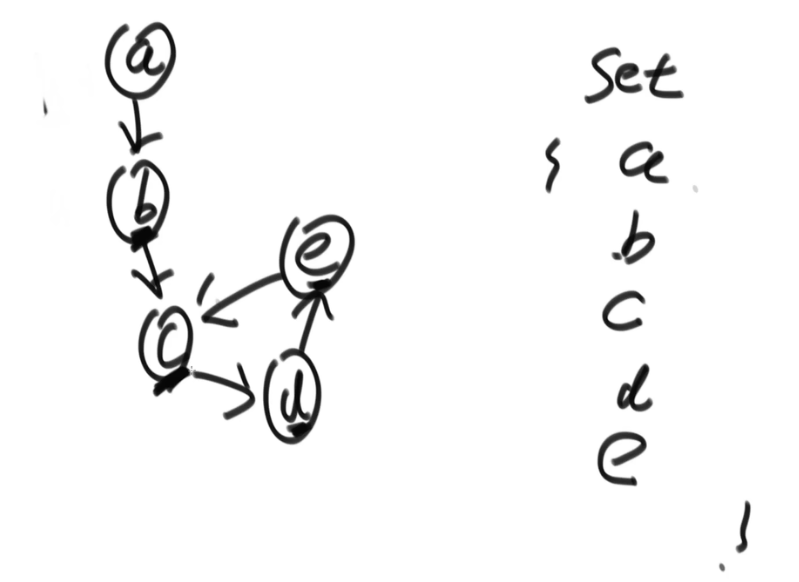 a
b
c
d
e
Set
{ a
b
c
d
e
}